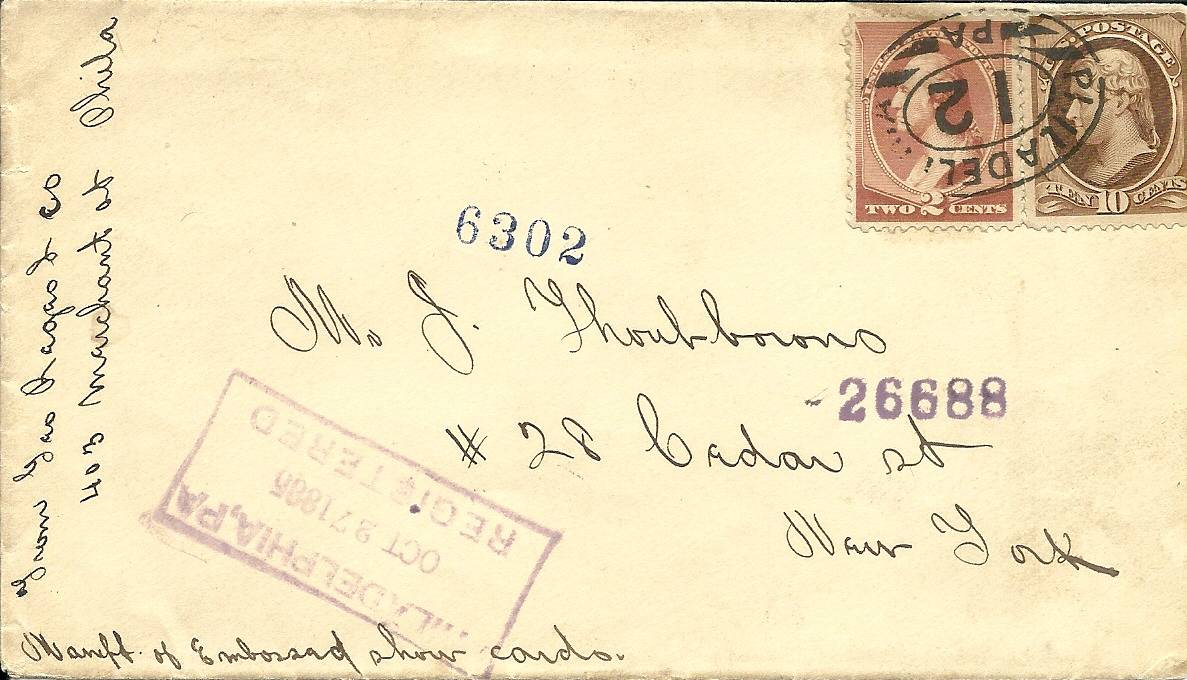 From Geo
& Co
403 Marchant st Phila
U.S. POSTAGE
TWO 2 CENTS
TEN 10 CENTS
PHILADEL
PA
12
6302
Mr J. Thoubborons
26688
# 28 Cedar st
New York
LADELPHIA, PA
OCT 27 1885
REGISTERED
Manft. of Embossed show cards.